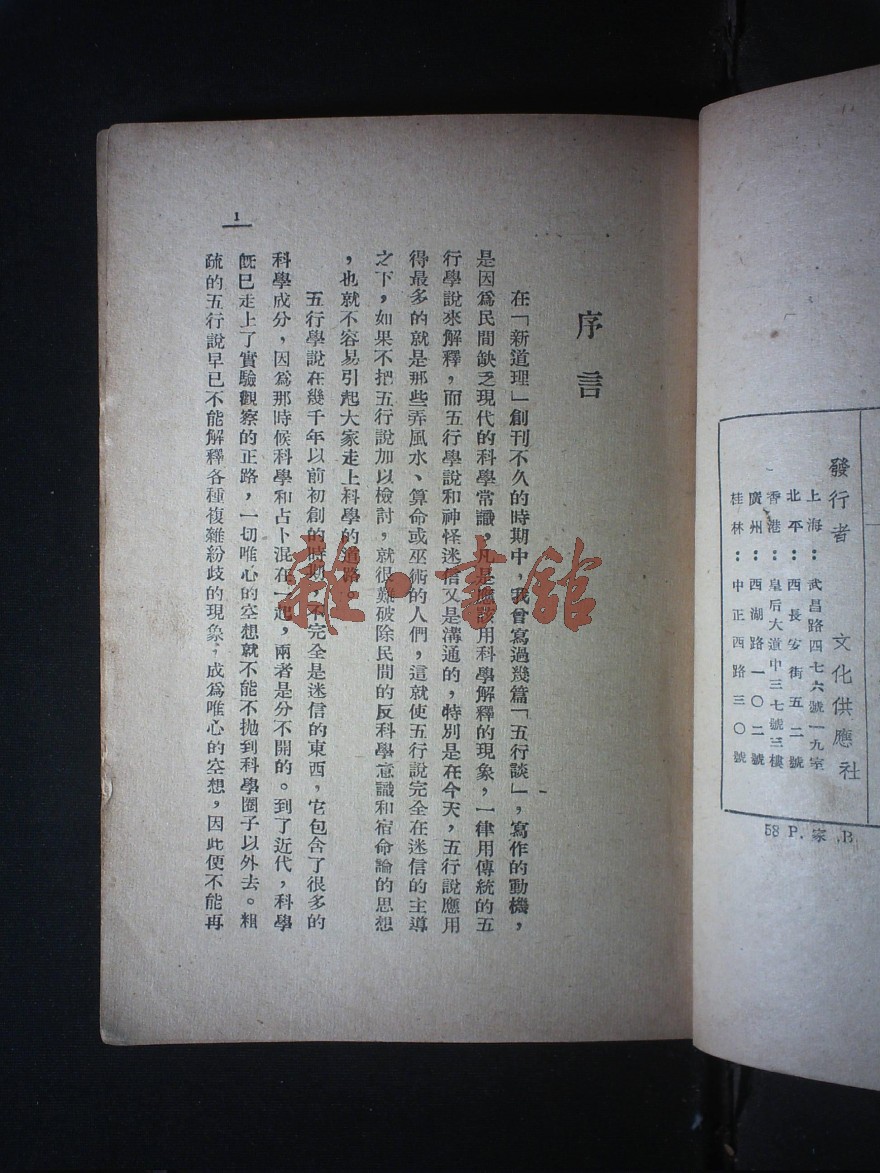 發行者 文化供應社
上海：武昌路四七六號一九室
北平：西長安街五二號
香港：皇后大道中三七號三樓
廣州：西湖路一〇二號
桂林：中正西路三〇號
58 P. 家 .B
序言
在「新道理」創刊不久的時期中，我曾寫過幾篇「五行談」，寫作的動機，
是因爲民間缺乏現代的科學常識，凡是應該用科學解釋的現象，一律用傳統的五
行學說來解釋，而五行學說和神怪迷信又是溝通的，特別是在今天，五行說應用
得最多的就是那些弄風水、算命或巫術的人們，這就使五行說完全在迷信的主導
之下，如果不把五行說加以檢討，就很難破除民間的反科學意識和宿命論的思想
，也就不容易引起大家走上科學的道路。
五行學說在幾千年以前初創的時期，不完全是迷信的東西，它包含了很多的
科學成分，因爲那時候科學和占卜混在一起，兩者是分不開的。到了近代，科學
旣已走上了實驗觀察的正路，一切唯心的空想就不能不拋到科學圈子以外去。粗
疏的五行說早已不能解釋各種複雜紛歧的現象，成爲唯心的空想，因此便不能再
1
雜·書館